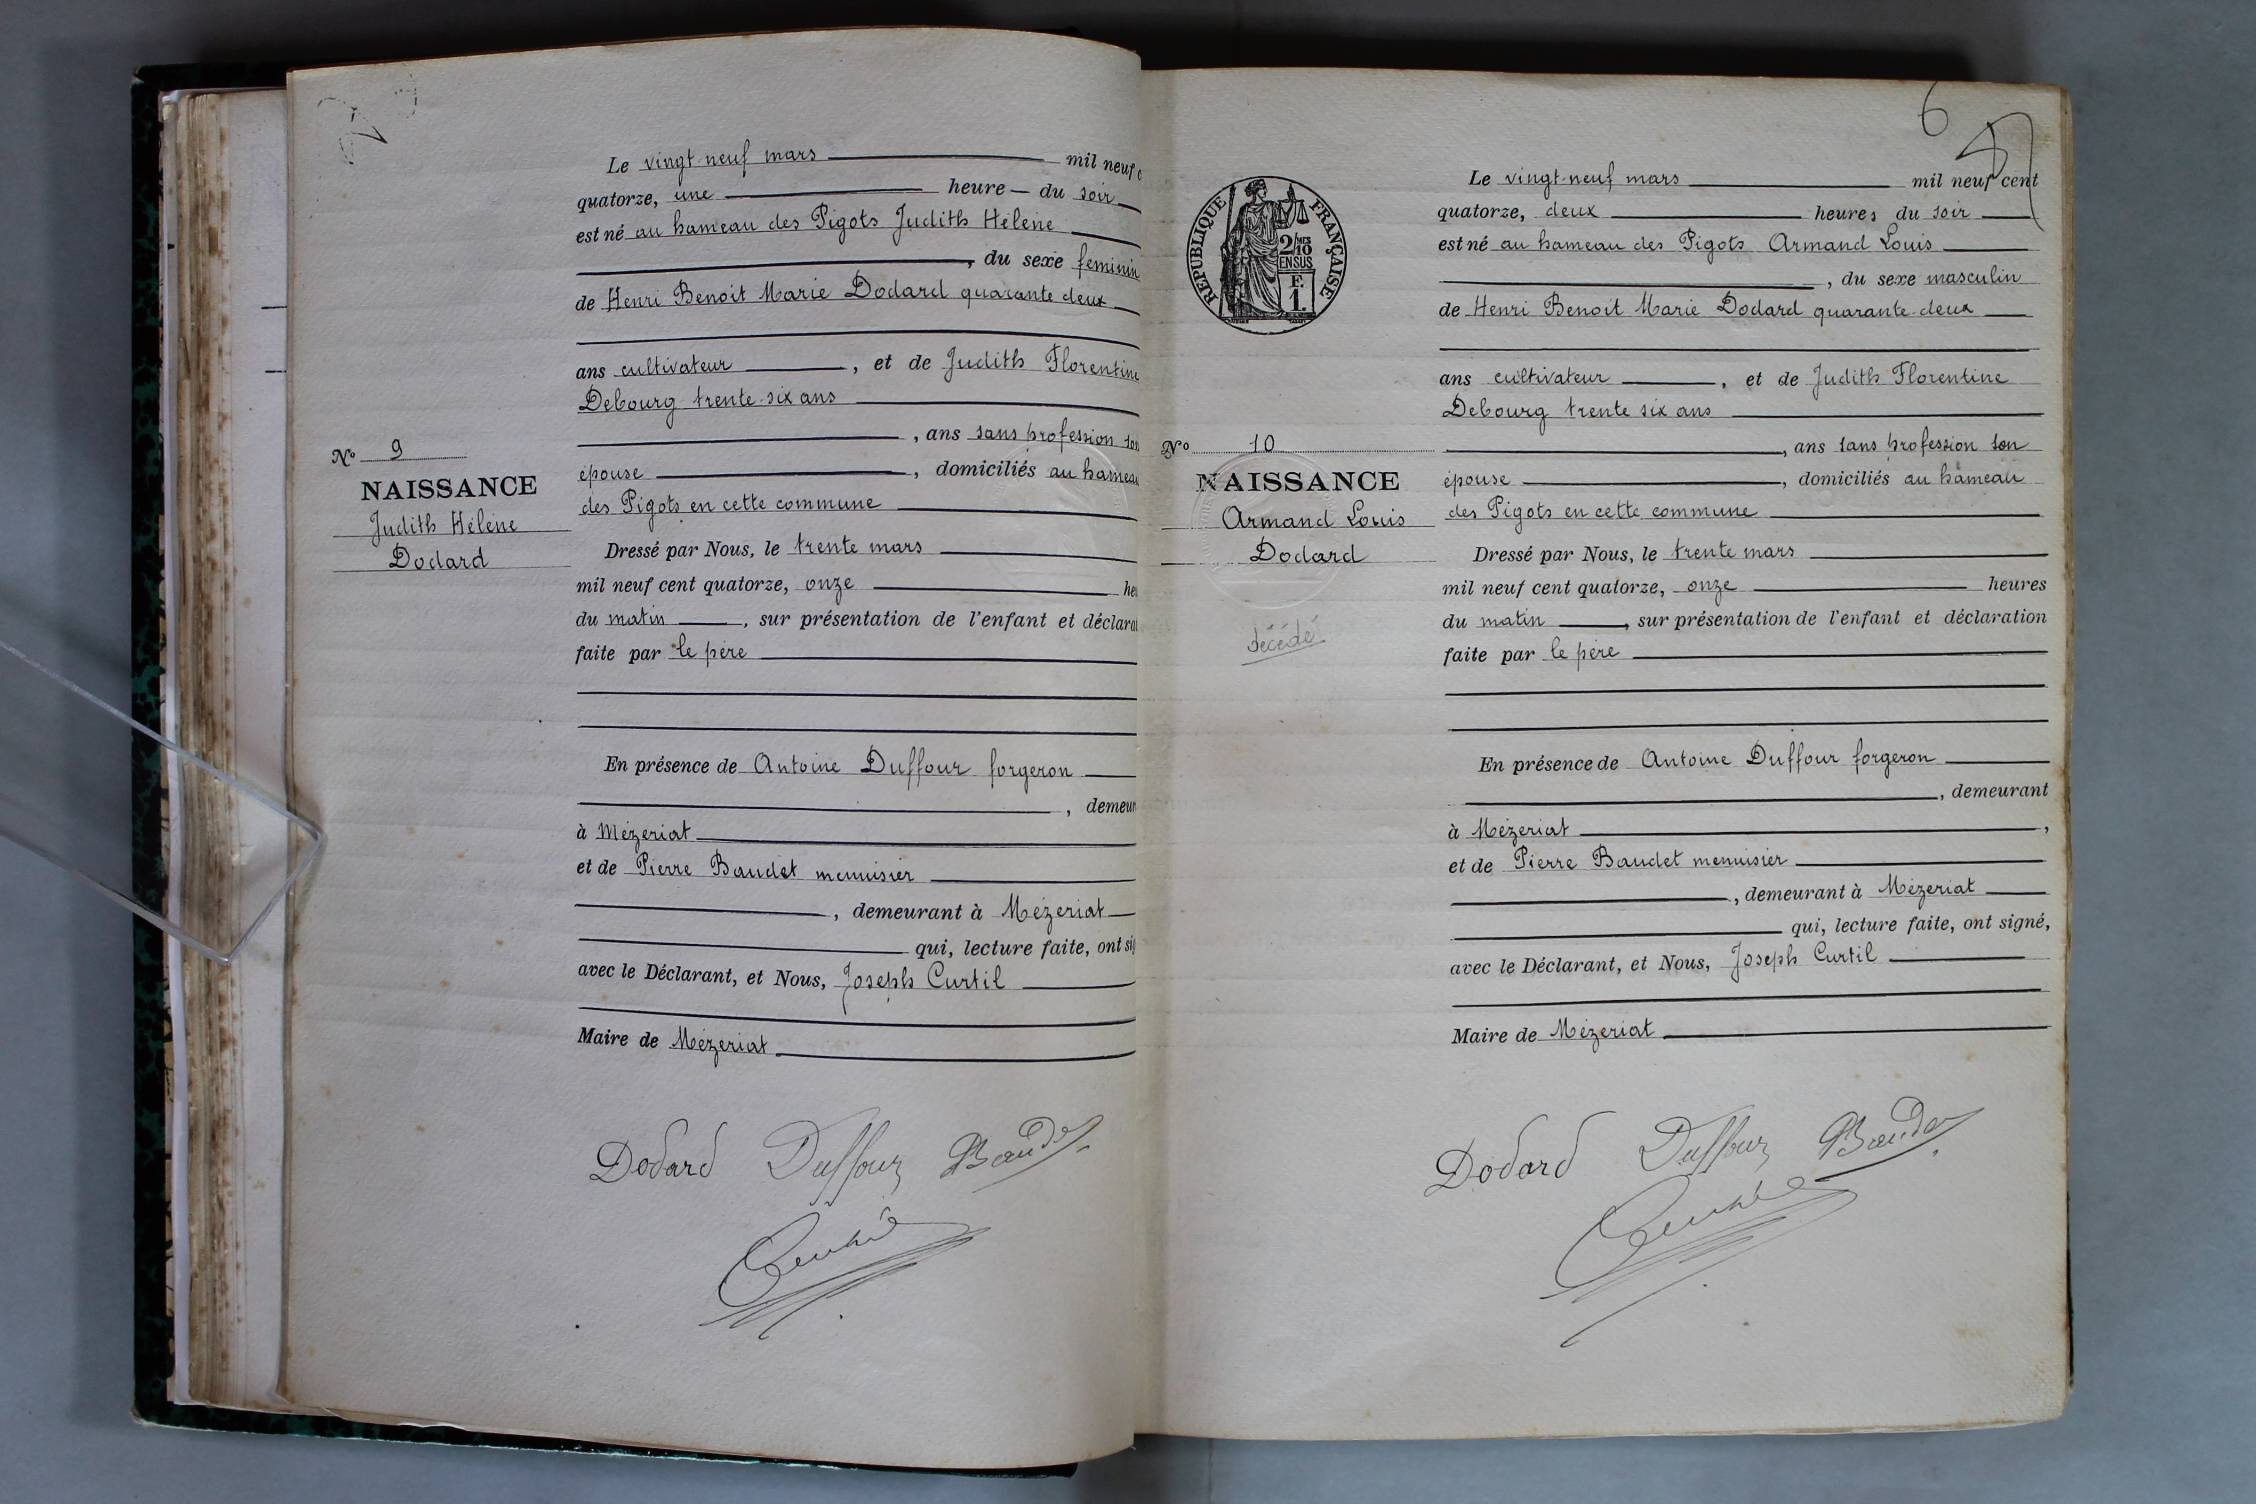 Le vingt-neuf mars mil neuf c
quatorze, une heure du soir
est né au hameau des Pigots Judith Hélène
, du sexe feminin
de Henri Benoit Marie Dodard quarante deux
ans cultivateur , et de Judith Florentine
Debourg trente-six ans
, ans sans profession son
épouse , domiciliés au hameau
des Pigots en cette commune
Dressé par Nous, le trente mars
mil neuf cent quatorze, onze heu
du matin , sur présentation de l'enfant et déclarat
faite par le père
En présence de Antoine Duffour forgeron
, demeur
à Mézeriat
et de Pierre Baudet menuisier
, demeurant à Mézeriat
qui, lecture faite, ont sig
avec le Déclarant, et Nous, Joseph Curtil
Maire de Mézeriat
Nº 9
NAISSANCE
Judith Hélène
Dodard
Dodard Duffour Baudet
Curtil
6
RÉPUBLIQUE FRANÇAISE
2/10 MES
EN SUS
F.
1.
Le vingt-neuf mars mil neuf cent
quatorze, deux heures du soir
est né au hameau des Pigots Armand Louis
, du sexe masculin
de Henri Benoit Marie Dodard quarante-deux
ans cultivateur , et de Judith Florentine
Debourg trente six ans
, ans sans profession son
épouse , domiciliés au hameau
des Pigots en cette commune
Dressé par Nous, le trente mars
mil neuf cent quatorze, onze heures
du matin , sur présentation de l'enfant et déclaration
faite par le père
En présence de Antoine Duffour forgeron
, demeurant
à Mézeriat ,
et de Pierre Baudet menuisier
, demeurant à Mézeriat
qui, lecture faite, ont signé,
avec le Déclarant, et Nous, Joseph Curtil
Maire de Mézeriat
Nº 10
NAISSANCE
Armand Louis
Dodard
décédé
Dodard Duffour Baudet
Curtil